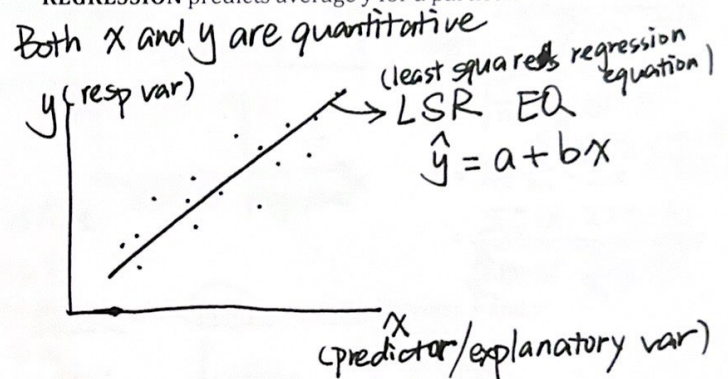 REGRESSION predicts average y for a
Both x and y are quantitative
y (resp var)
(least squares regression equation)
LSR EQ
ŷ = a + bx
x
(predictor/explanatory var)